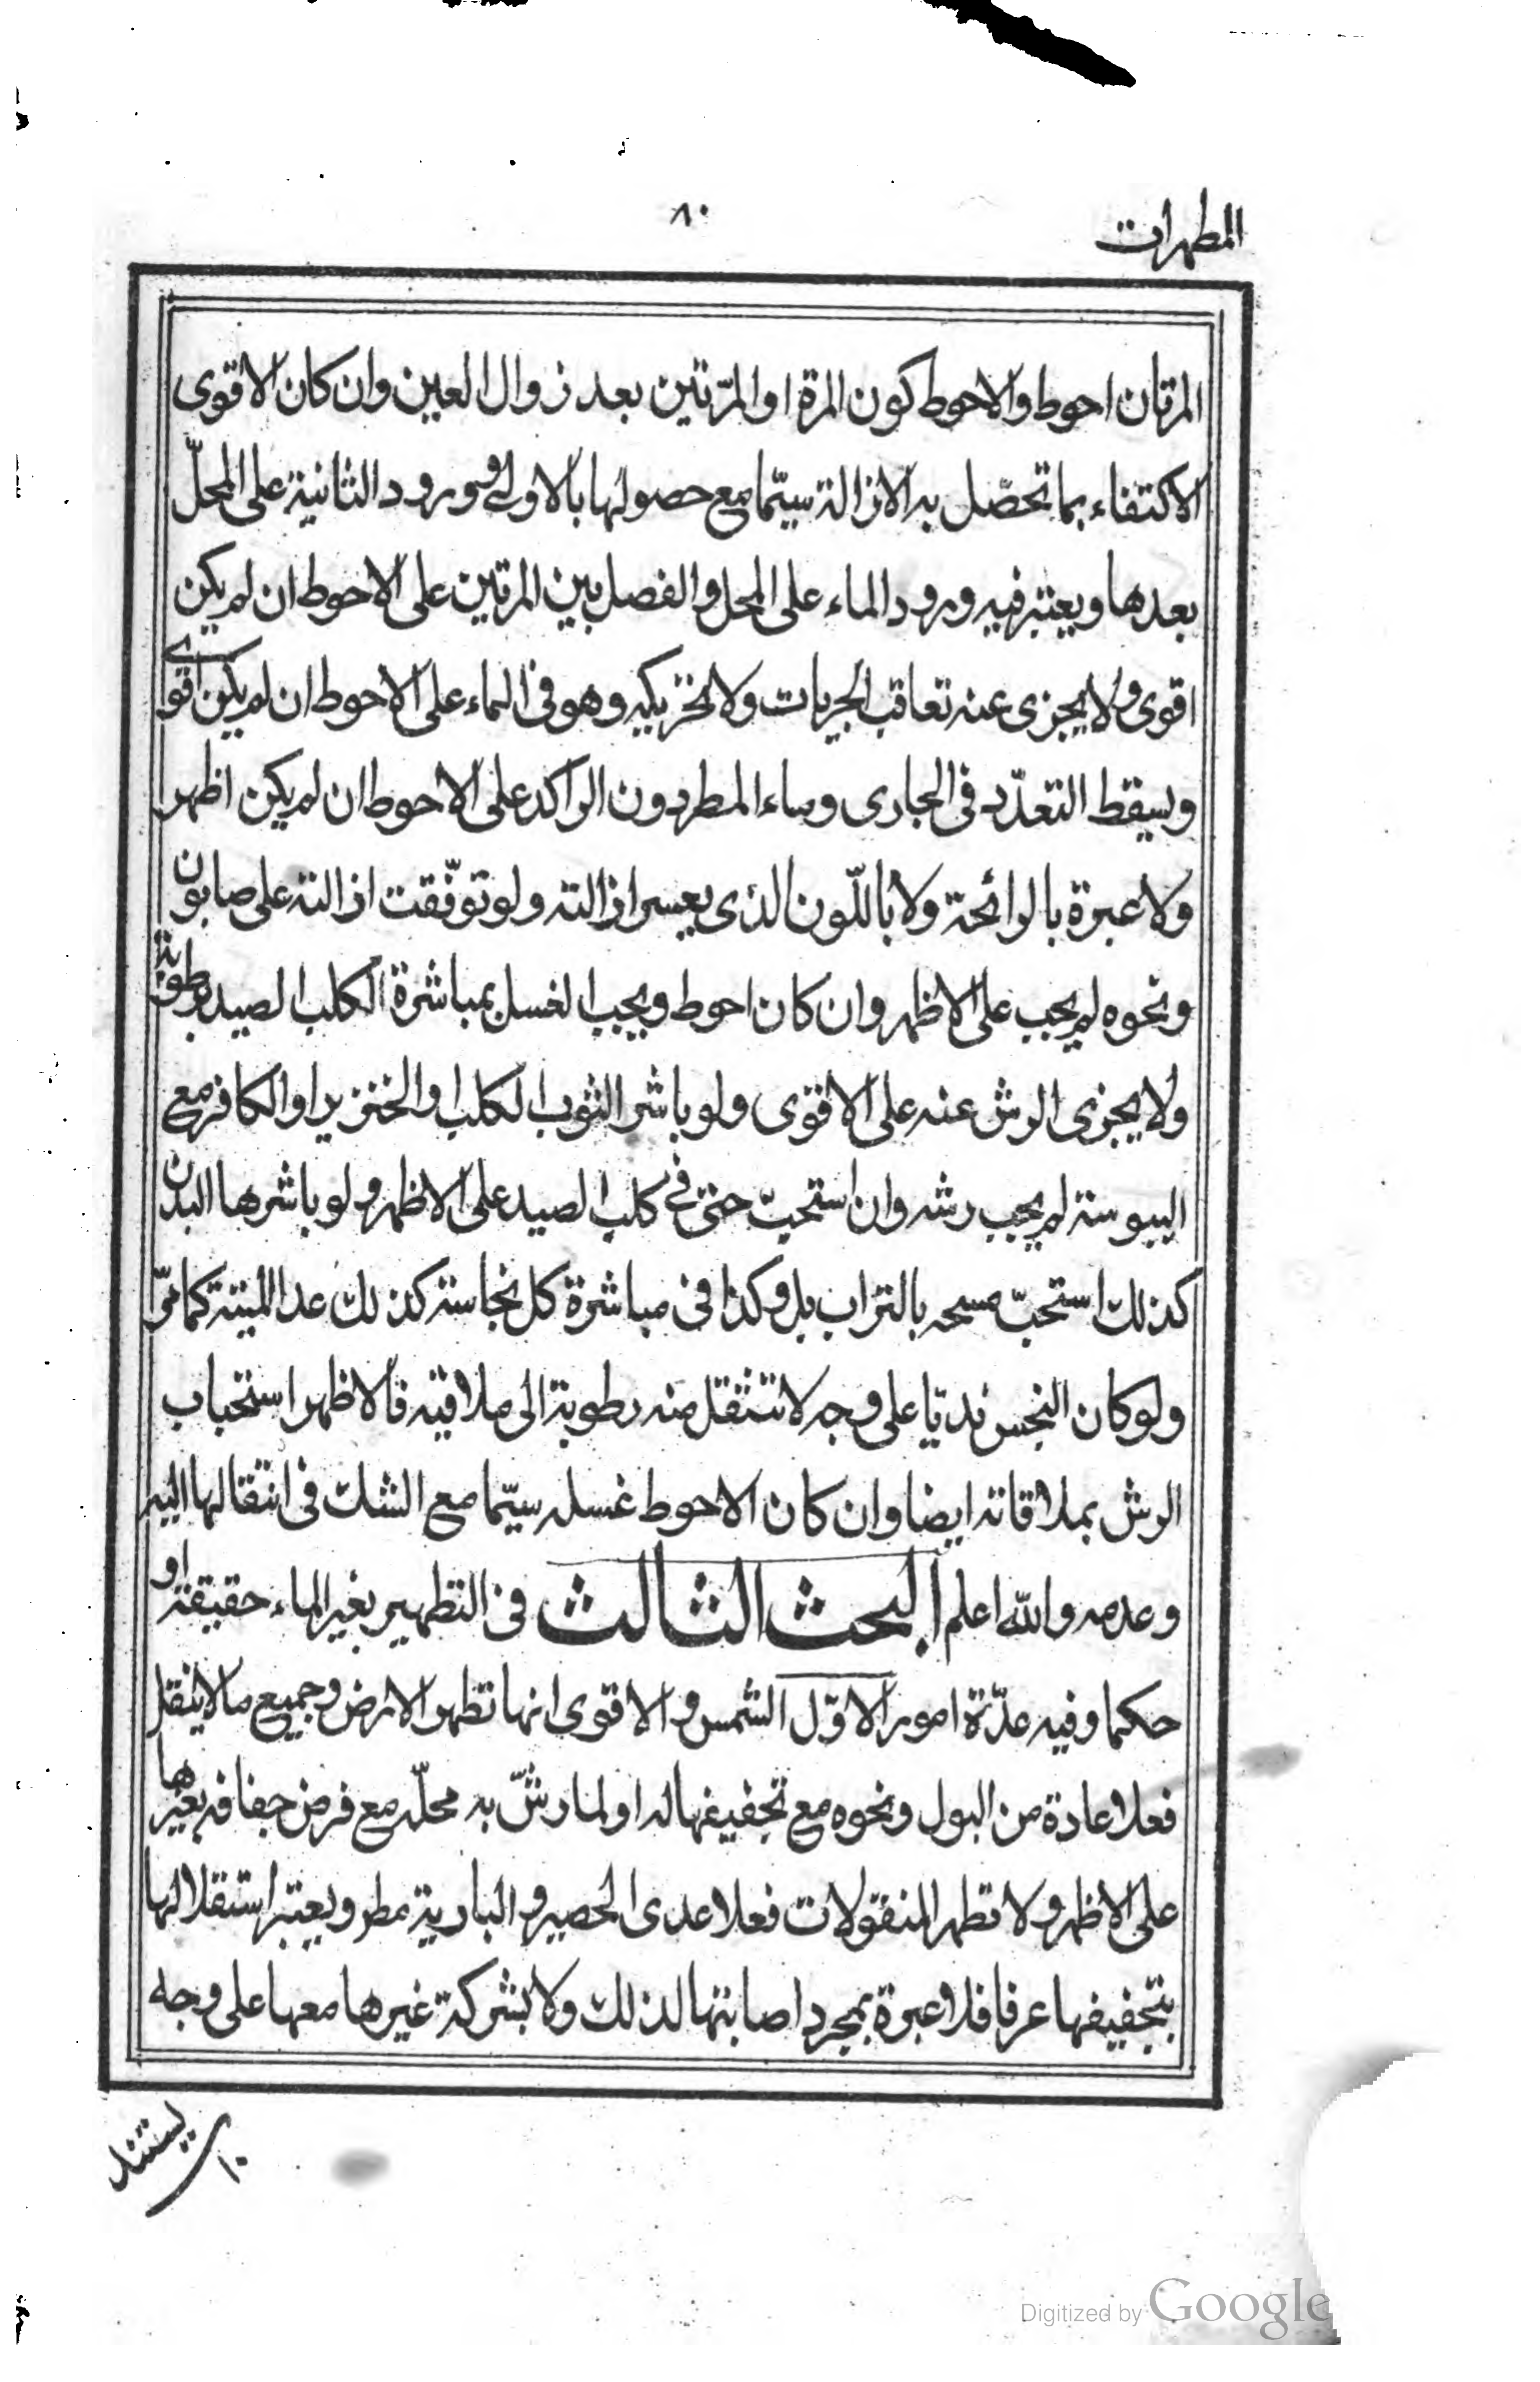 المطهرات
٨٠
المرتان احوط والاحوط كون المرة او المرّتين بعد زوال العين وان كان الاقوى
الاكتفاء بما تحصّل به الازالة سيّما مع حصولها بالاولى و ورود الثانية على المحلّ
بعدها ويعتبر فيه ورود الماء على المحل والفصل بين المرتين على الاحوط ان لم يكن
اقوى ولا يجزى عنه تعاقب الجريات ولا تحريكه وهو فى الماء على الاحوط ان لم يكن اقوى
ويسقط التعدّد فى الجارى وماء المطر دون الراكد على الاحوط ان لم يكن اظهر
ولا عبرة بالرائحة ولا باللّون الذى يعسر ازالته ولو توقّفت ازالته على صابون
ونحوه لم يجب على الاظهر وان كان احوط ويجب الغسل بمباشرة الكلب الصيد برطوبة
ولا يجزى الرش عنه على الاقوى ولو باشر الثوب الكلب او الخنزير او الكافر مع
اليبوسة لم يجب رشه وان استحبّ حتى فى كلب الصيد على الاظهر ولو باشرها البدن
كذلك استحبّ مسحه بالتراب بل وكذا فى مباشرة كل نجاسة كذلك عدا الميتة كما مرّ
ولو كان النجس نديّا على وجه لا تنتقل منه رطوبة الى ملاقيه فالاظهر استحباب
الرش بملاقاته ايضا وان كان الاحوط غسله سيّما مع الشك فى انتقالها اليه
وعدمه والله اعلم البحث الثالث فى التطهير بغير الماء حقيقة او
حكما وفيه عدّة امور الاوّل الشمس و الاقوى انها تطهر الارض وجميع ما لا ينقل
فعلا عادة من البول ونحوه مع تجفيفها له او لما رشّ به محلّه مع فرض جفافه بغيرها
على الاظهر ولا تطهر المنقولات فعلا عدى الحصير و البارية مطر ويعتبر استقلالها
بتجفيفها عرفا فلا عبرة بمجرد اصابتها لذلك ولا بشركة غيرها معها على وجه
يستند
Digitized by Google